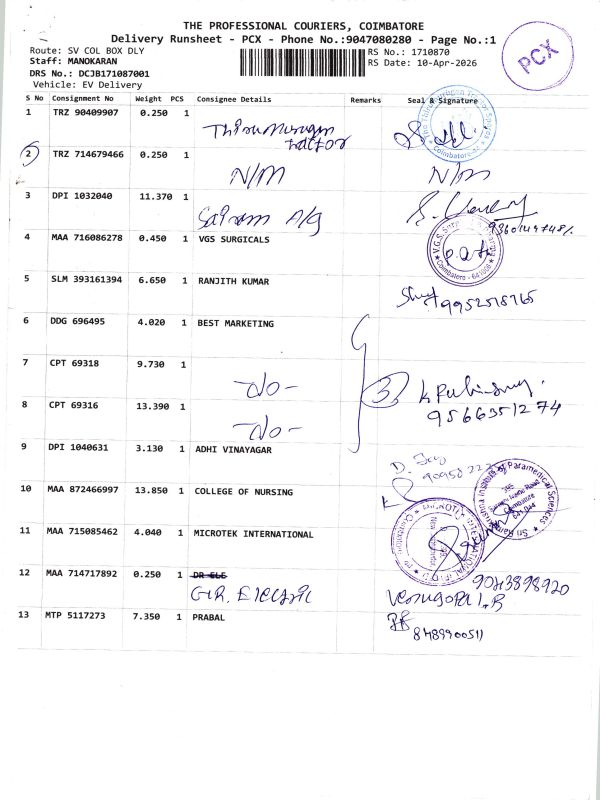 THE PROFESSIONAL COURIERS, COIMBATORE
Delivery Runsheet - PCX - Phone No.:9047080280 - Page No.:1
Route: SV COL BOX DLY
RS No.: 1710870
Staff: MANOKARAN
RS Date: 10-Apr-2026
DRS No.: DCJB171087001
Vehicle: EV Delivery
PCX
S No Consignment No Weight PCS Consignee Details Remarks Seal & Signature
1 TRZ 90409907 0.250 1 Thirumurugan
2 TRZ 714679466 0.250 1 N/M N/M
3 DPI 1032040 11.370 1 Sairam A/g
4 MAA 716086278 0.450 1 VGS SURGICALS
5 SLM 393161394 6.650 1 RANJITH KUMAR
6 DDG 696495 4.020 1 BEST MARKETING
7 CPT 69318 9.730 1 -do-
3
8 CPT 69316 13.390 1 -do- 9566351274
9 DPI 1040631 3.130 1 ADHI VINAYAGAR
10 MAA 872466997 13.850 1 COLLEGE OF NURSING
11 MAA 715085462 4.040 1 MICROTEK INTERNATIONAL
12 MAA 714717892 0.250 1 DR ELE
G.R. Electric Venugopal.R 9043898920
13 MTP 5117273 7.350 1 PRABAL 8489900511